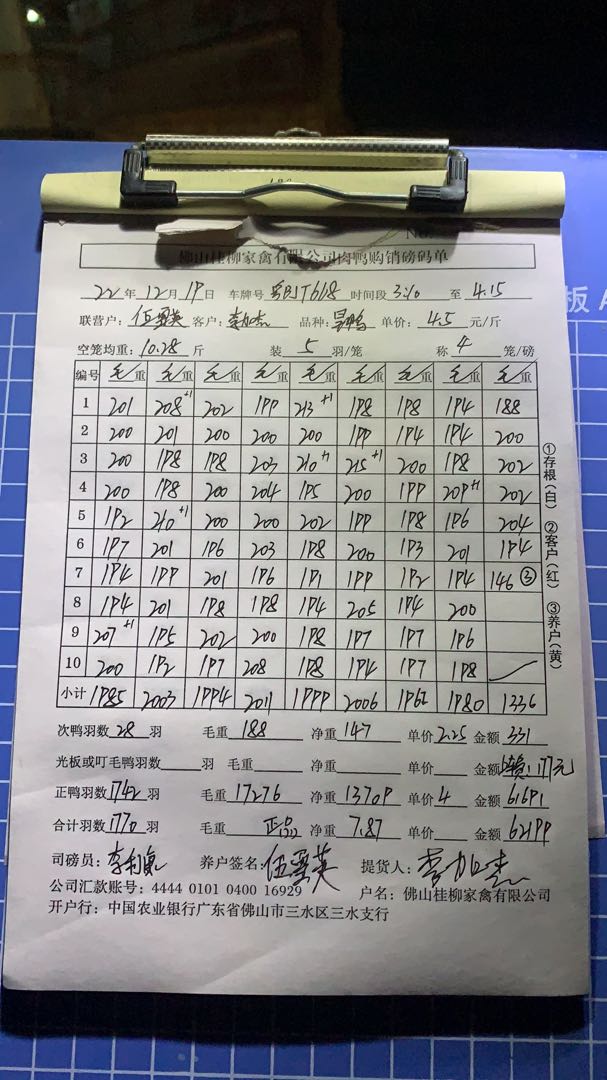 No.
佛山桂柳家禽有限公司肉鸭购销磅码单
22年12月19日 车牌号 时间段 3:10 至 4.15
联营户： 客户： 品种： 单价：4.5元/斤
空笼均重：10.28斤 装 5 羽/笼 称 4 笼/磅
编号 毛/重 毛/重 毛/重 毛/重 毛/重 毛/重 毛/重 毛/重 毛/重
1 201 208+1 202 199 213+1 198 198 194 188
2 200 201 200 200 200 199 194 194 200
3 200 198 198 203 210+1 215+1 200 198 202
4 200 198 200 204 195 200 199 209+1 202
5 192 210+1 200 200 202 199 198 196 204
6 197 201 196 203 198 200 193 201 194
7 194 199 201 196 191 199 192 194 146 ③
8 194 201 198 198 194 205 194 200
9 207+1 195 202 200 198 197 197 196
10 200 192 197 208 198 194 197 198
小计 1985 2003 1994 2011 1999 2006 1962 1980 1336
次鸭羽数 28 羽 毛重 188 净重 147 单价 2.25 金额 331
光板或叮毛鸭羽数 羽 毛重 净重 单价 金额 177元
正鸭羽数 1742 羽 毛重 17276 净重 13709 单价 4 金额 61691
合计羽数 1770 羽 毛重 净重 7.87 单价 金额 62199
司磅员： 养户签名：伍翠英 提货人：
公司汇款账号：4444 0101 0400 16929 户名：佛山桂柳家禽有限公司
开户行：中国农业银行广东省佛山市三水区三水支行
①存根（白） ②客户（红） ③养户（黄）
板 A